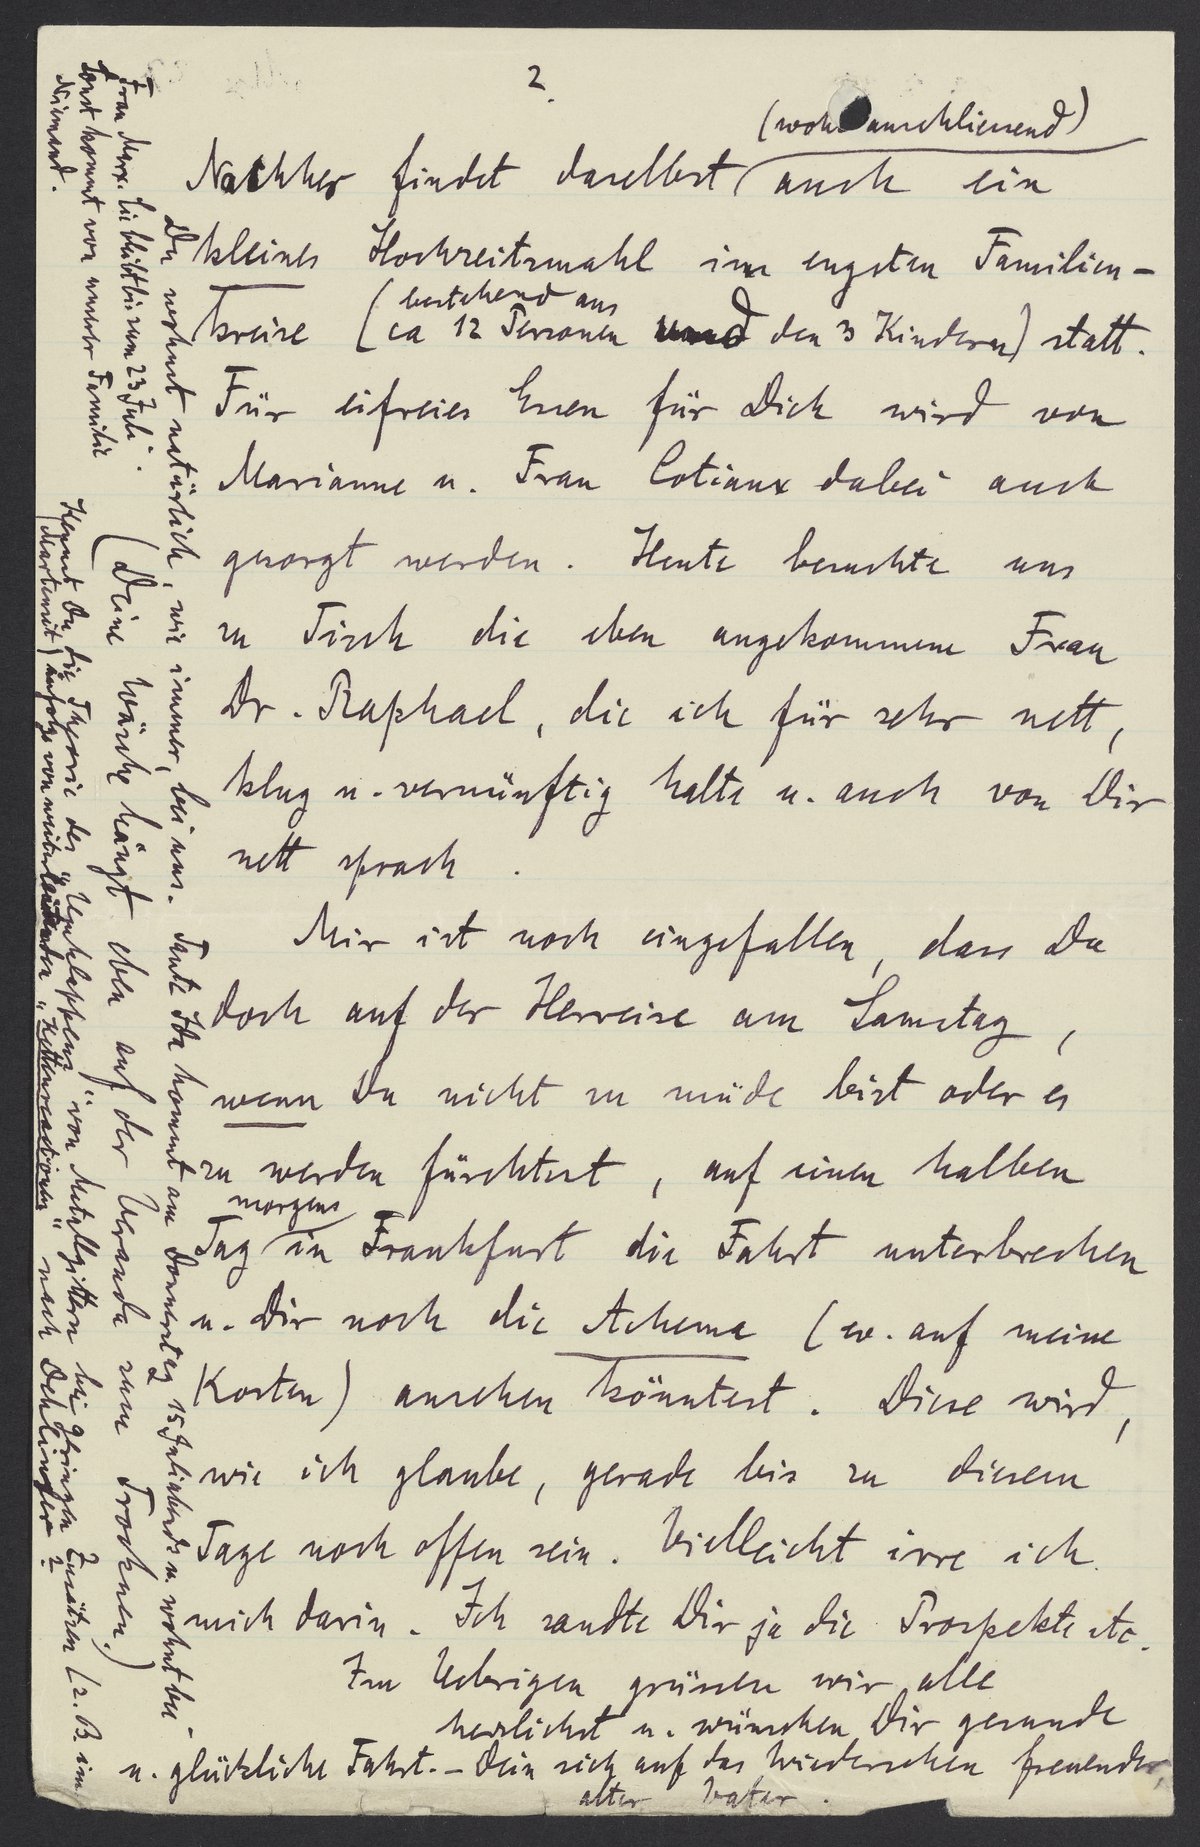 2.
(wohl anschliessend)
Nachher findet daselbst auch ein
kleines Hochzeitsmahl im engsten Familien-
bestehend aus
kreise (ca 12 Personen und den 3 Kindern) statt.
Für eifreies Essen für Dich wird von
Marianne u. Frau Cotiaux dabei auch
gesorgt werden. Heute besuchte uns
zu Tisch die eben angekommene Frau
Dr. Raphael, die ich für sehr nett,
klug u. vernünftig halte u. auch von Dir
nett sprach.
Mir ist noch eingefallen, dass Du
doch auf der Herreise am Samstag,
wenn Du nicht zu müde bist oder es
zu werden fürchtest, auf einen halben
morgens
Tag in Frankfurt die Fahrt unterbrechen
u. Dir noch die Achema (ev. auf meine
Kosten) ansehen könntest. Diese wird,
wie ich glaube, gerade bis zu diesem
Tage noch offen sein. Vielleicht irre ich
mich darin. Ich sandte Dir ja die Prospekte etc.
Im Uebrigen grüssen wir alle
herzlichst u. wünschen Dir gesunde
u. glückliche Fahrt. – Dein sich auf das Wiedersehen freuender,
alter Vater.
Du wohnst natürlich, wie immer, bei uns. Tante Ida kommt am Donnerstag 15. Juli abends u. wohnt bei
Frau Marx. Sie bleibt bis zum 23. Juli.
Sonst kommt von unserer Familie
Niemand.
(Deine Wäsche hängt eben auf der Veranda zum Trocknen.)
Kennst Du die Theorie des "Umklappens" von Metallgittern bei geringen Zusätzen (z. B. im
Martensit) infolge von "Kettenreactionen" nach Dehlinger?